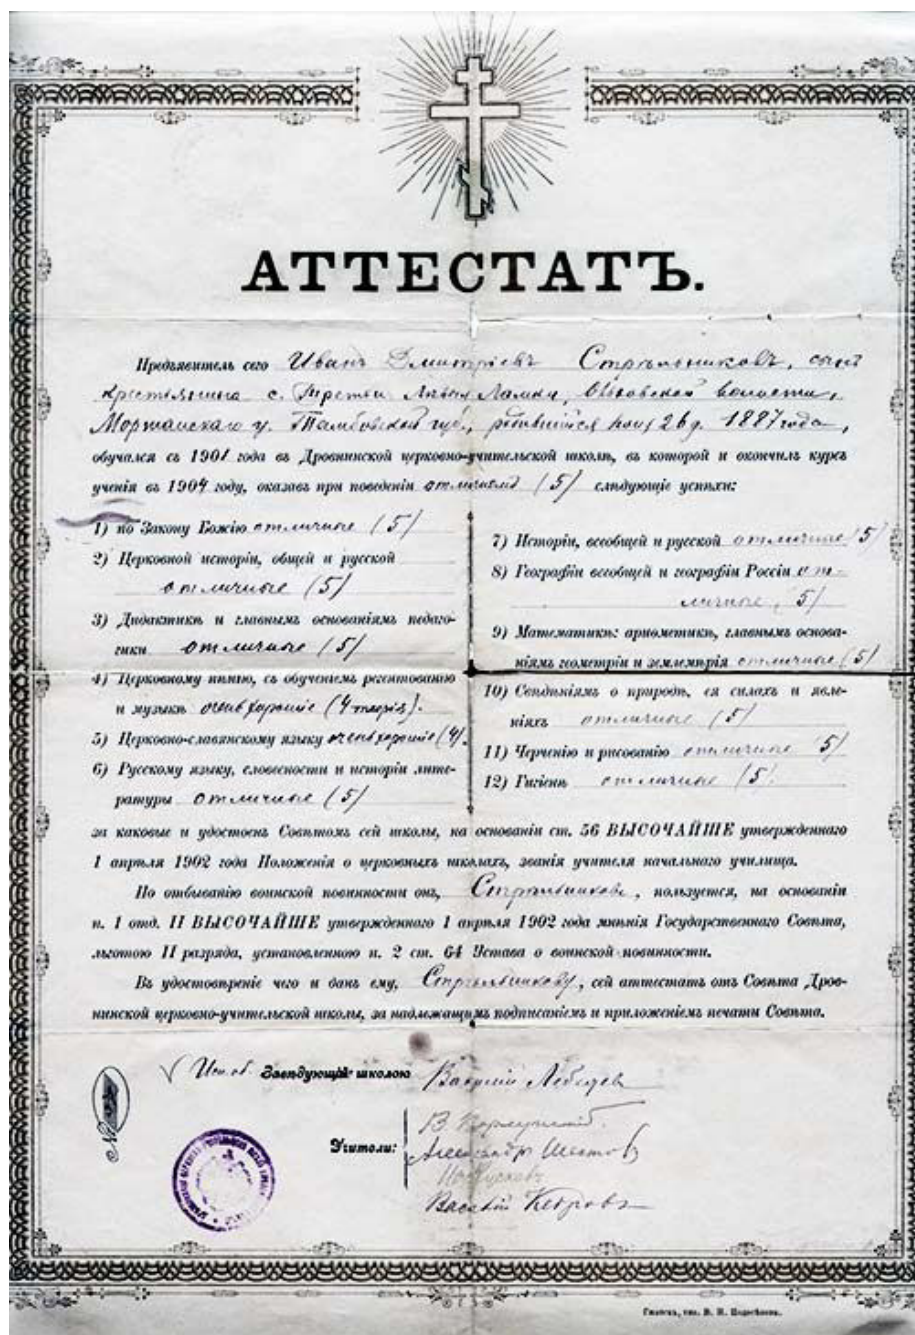 АТТЕСТАТЪ.
Предъявитель сего Иванъ Дмитріевъ Стрѣльниковъ, сынъ
крестьянина с. Третьи Лѣвыя Ламки, волости,
Моршанскаго у. Тамбовской губ., родившійся 26 д. 1887 года,
обучался съ 1901 года въ Дровнинской церковно-учительской школѣ, въ которой и окончилъ курсъ
ученія въ 1904 году, оказавъ при поведеніи отличномъ (5) слѣдующіе успѣхи:
1) по Закону Божію отличные (5)
2) Церковной исторіи, общей и русской
отличные (5)
3) Дидактикѣ и главнымъ основаніямъ педаго-
гики отличные (5)
4) Церковному пѣнію, съ обученіемъ регентованію
и музыкѣ очень хорошіе (4 теорія).
5) Церковно-славянскому языку очень хорошіе (4).
6) Русскому языку, словесности и исторіи лите-
ратуры отличные (5)
7) Исторіи, всеобщей и русской отличные (5)
8) Географіи всеобщей и географіи Россіи от-
личные, 5)
9) Математикѣ: ариѳметикѣ, главнымъ основа-
ніямъ геометріи и землемѣрія отличные (5)
10) Свѣдѣніямъ о природѣ, ея силахъ и явле-
ніяхъ отличные (5)
11) Черченію и рисованію отличные 5)
12) Гигіенѣ отличные (5)
за каковые и удостоенъ Совѣтомъ сей школы, на основаніи ст. 56 ВЫСОЧАЙШЕ утвержденнаго
1 апрѣля 1902 года Положенія о церковныхъ школахъ, званія учителя начальнаго училища.
По отбыванію воинской повинности онъ, Стрѣльниковъ, пользуется, на основаніи
п. 1 отд. II ВЫСОЧАЙШЕ утвержденнаго 1 апрѣля 1902 года мнѣнія Государственнаго Совѣта,
льготою II разряда, установленною п. 2 ст. 64 Устава о воинской повинности.
Въ удостовѣреніе чего и данъ ему, Стрѣльникову, сей аттестатъ отъ Совѣта Дров-
нинской церковно-учительской школы, за надлежащимъ подписаніемъ и приложеніемъ печати Совѣта.
Исп. об. Завѣдующій школою Василій Лебедев
№
Учители:
В.
Александръ Шестовъ
Василій Кедровъ
Гжатскъ, тип. В. И.